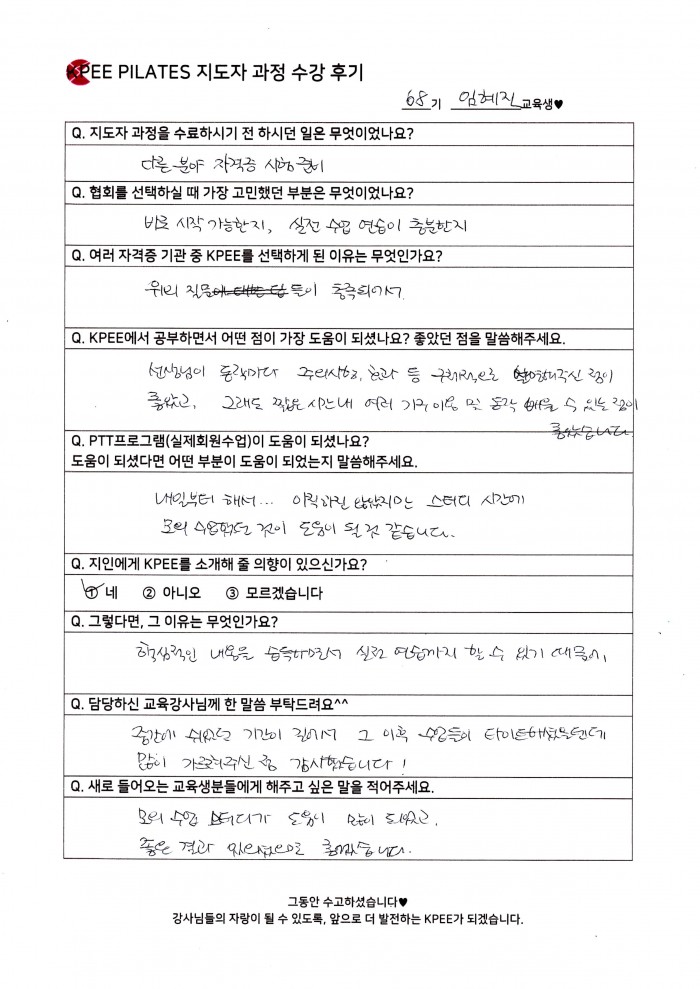 KPEE PILATES 지도자 과정 수강 후기
68기 임혜진교육생♥
Q. 지도자 과정을 수료하시기 전 하시던 일은 무엇이었나요?
다른 분야 자격증 시험 준비
Q. 협회를 선택하실 때 가장 고민했던 부분은 무엇이었나요?
바로 시작 가능한지, 실전 수업 연습이 충분한지
Q. 여러 자격증 기관 중 KPEE를 선택하게 된 이유는 무엇인가요?
위의 질문들이 충족되어서.
Q. KPEE에서 공부하면서 어떤 점이 가장 도움이 되셨나요? 좋았던 점을 말씀해주세요.
선생님이 동작마다 주의사항, 효과 등 구체적으로 점이
좋았고, 그래도 짧은 시간내 여러 기구 이용 및 동작 배울 수 있는 점이
좋았습니다.
Q. PTT프로그램(실제회원수업)이 도움이 되셨나요?
도움이 되셨다면 어떤 부분이 도움이 되었는지 말씀해주세요.
내일부터 해서... 아직하진 않았지만 스터디 시간에
모의 수업했던 것이 도움이 될 것 같습니다.
Q. 지인에게 KPEE를 소개해 줄 의향이 있으신가요?
① 네 ② 아니오 ③ 모르겠습니다
Q. 그렇다면, 그 이유는 무엇인가요?
핵심적인 내용을 습득하면서 실전 연습까지 할 수 있기 때문에,
Q. 담당하신 교육강사님께 한 말씀 부탁드려요^^
중간에 쉬었던 기간이 길어서 그 이후 수업들이 타이트해졌을텐데
많이 가르쳐주신 점 감사했습니다!
Q. 새로 들어오는 교육생분들에게 해주고 싶은 말을 적어주세요.
모의 수업 스터디가 도움이 많이 되었고,
좋은 결과 있으셨으면 좋겠습니다.
그동안 수고하셨습니다♥
강사님들의 자랑이 될 수 있도록, 앞으로 더 발전하는 KPEE가 되겠습니다.